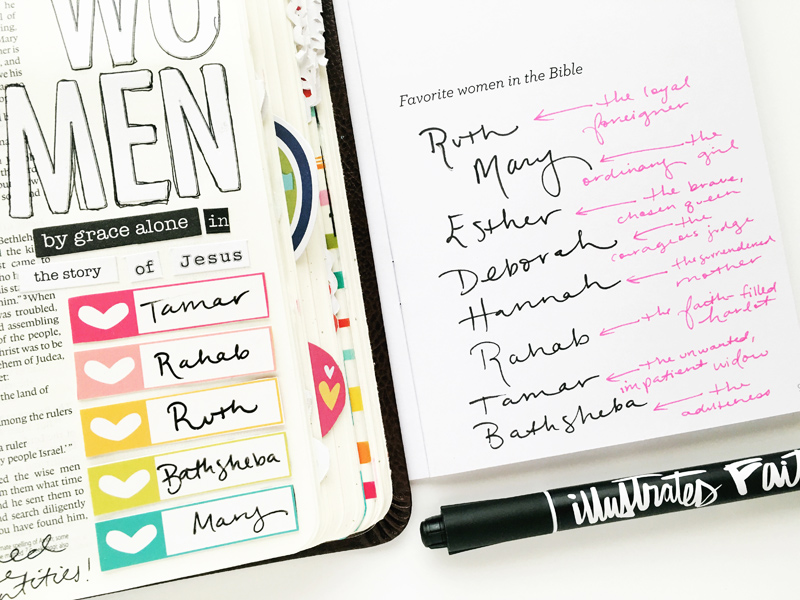 WO
MEN
by grace alone in
the story of Jesus
Tamar
Rahab
Ruth
Bathsheba
Mary
the land of
among the rulers
a ruler
y people Israel.'"
the wise men
from them what time
and he sent them to
and search diligently
you have found him,
Favorite women in the Bible
Ruth ← the loyal
foreigner
Mary ← the
ordinary girl
Esther ← the brave,
chosen queen
Deborah ← the
courageous judge
Hannah ← the surrendered
mother
Rahab ← the faith filled
harlot
Tamar ← the unwanted,
impatient widow
Bathsheba ← the
adulteress
illustrates Fait